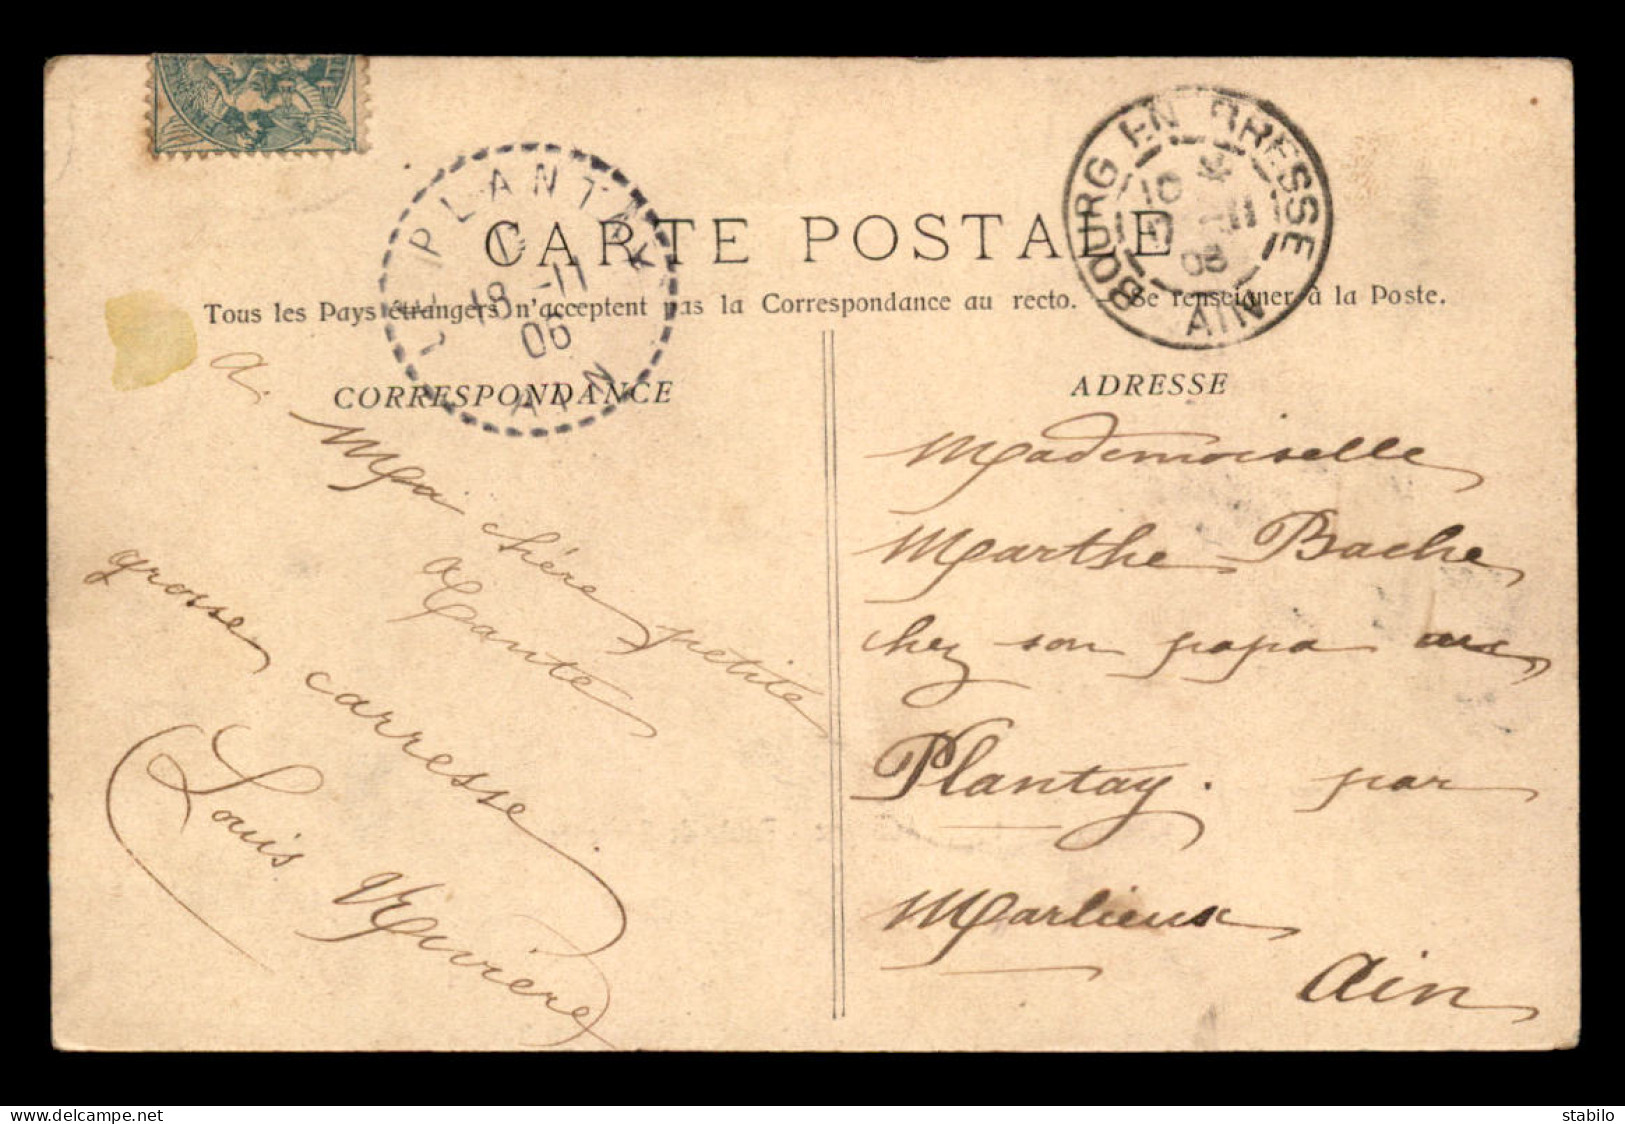 CARTE POSTALE
Tous les Pays étrangers n'acceptent pas la Correspondance au recto. — Se renseigner à la Poste.
CORRESPONDANCE
ADRESSE
LE PLANTAY
18 -11
06
AIN
BOURG EN BRESSE
10
17 -11
06
AIN
a
Ma chère petite
Tante
grosse carresse
Louis Rivière
Mademoiselle
Marthe Bache
chez son papa au
Plantay. par
Marlieux
Ain
delcampe.net
stabilo